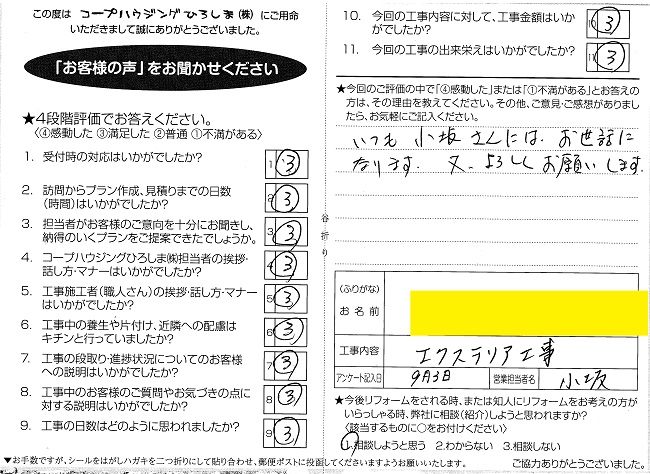 この度は コープハウジングひろしま(株) にご用命
いただきまして誠にありがとうございました。
「お客様の声」をお聞かせください
★4段階評価でお答えください。
〈④感動した ③満足した ②普通 ①不満がある〉
1. 受付時の対応はいかがでしたか? 1 3
2. 訪問からプラン作成、見積りまでの日数
(時間)はいかがでしたか? 2 3
3. 担当者がお客様のご意向を十分にお聞きし、
納得のいくプランをご提案できたでしょうか。 3 3
4. コープハウジングひろしま㈱担当者の挨拶・
話し方・マナーはいかがでしたか? 4 3
5. 工事施工者(職人さん)の挨拶・話し方・マナー
はいかがでしたか? 5 3
6. 工事中の養生や片付け、近隣への配慮は
キチンと行っていましたか? 6 3
7. 工事の段取り・進捗状況についてのお客様
への説明はいかがでしたか? 7 3
8. 工事中のお客様のご質問やお気づきの点に
対する説明はいかがでしたか? 8 3
9. 工事の日数はどのように思われましたか? 9 3
▼お手数ですが、シールをはがしハガキを二つ折りにして貼り合わせ、郵便ポストに投函してくださいますようお願いいたします。
谷折り
10. 今回の工事内容に対して、工事金額はいか
がでしたか? 3
11. 今回の工事の出来栄えはいかがでしたか? 11 3
★今回のご評価の中で「④感動した」または「①不満がある」とお答え
の方は、その理由を教えてください。その他、ご意見・ご感想がありまし
たら、お気軽にご記入ください。
いつも 小坂さんには、お世話に
なります。又、よろしくお願いします。
(ふりがな)
お名前
工事内容 エクステリア工事
アンケート記入日 9月3日 営業担当者名 小坂
★今後リフォームをされる時、または知人にリフォームをお考えの方が
いらっしゃる時、弊社に相談(紹介)しようと思われますか?
〈該当するものに○をお付けください〉
1.相談しようと思う 2.わからない 3.相談しない
ご協力ありがとうございました。